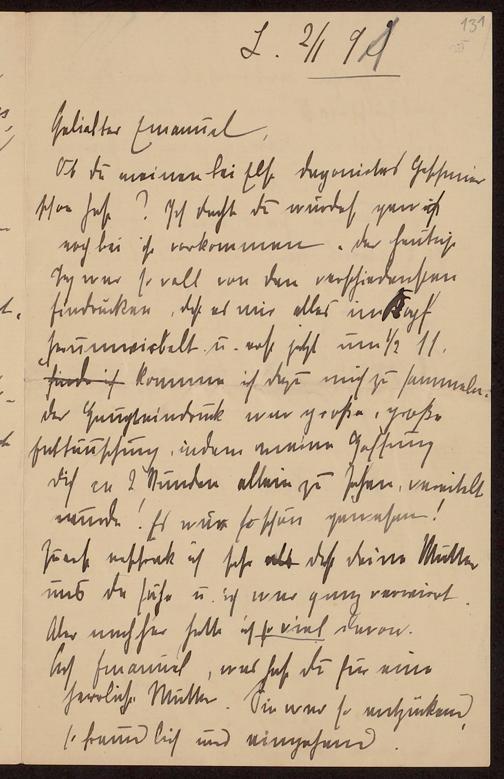 131
L. 2/1 91
Geliebter Emanuel,
Ob du meinen bei Else deponirten Geschmier
schon hast? Ich dacht du würdest gewiß
noch bei ihr vorkommen. Der heutige
Tag war so voll von den verschiedensten
Eindrücken, daß es mir alles im Kopf
herumwirbelt u. erst jetzt um 1/2 11.
komme ich dazu mich zu sammeln.
Der Haupteindruck war große, große
Enttäuschung, indem meine Hoffnung
dich ca 2 Stunden allein zu sehen, vereitelt
wurde! Es wär so schön gewesen!
Zuerst erschrak ich sehr daß deine Mutter
uns da sähe u. ich war ganz verwirrt.
Aber nachher hatte ich so viel davon.
Ach Emanuel, was hast du für eine
herrliche Mutter. Sie war so entzückend,
so freundlich und eingehend.